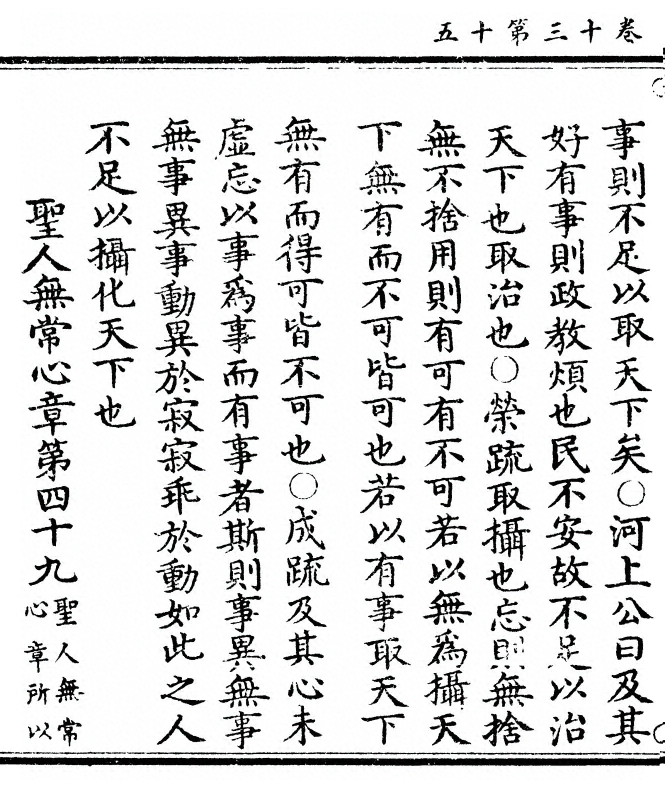 卷十三第十五
事則不足以取天下矣○河上公曰及其
好有事則政教煩也民不安故不足以治
天下也取治也○榮疏取攝也忘則無捨
無不捨用則有可有不可若以無爲攝天
下無有而不可皆可也若以有事取天下
無有而得可皆不可也○成疏及其心未
虛忘以事爲事而有事者斯則事異無事
無事異事動異於寂寂乖於動如此之人
不足以攝化天下也
聖人無常心章第四十九
聖人無常
心章所以